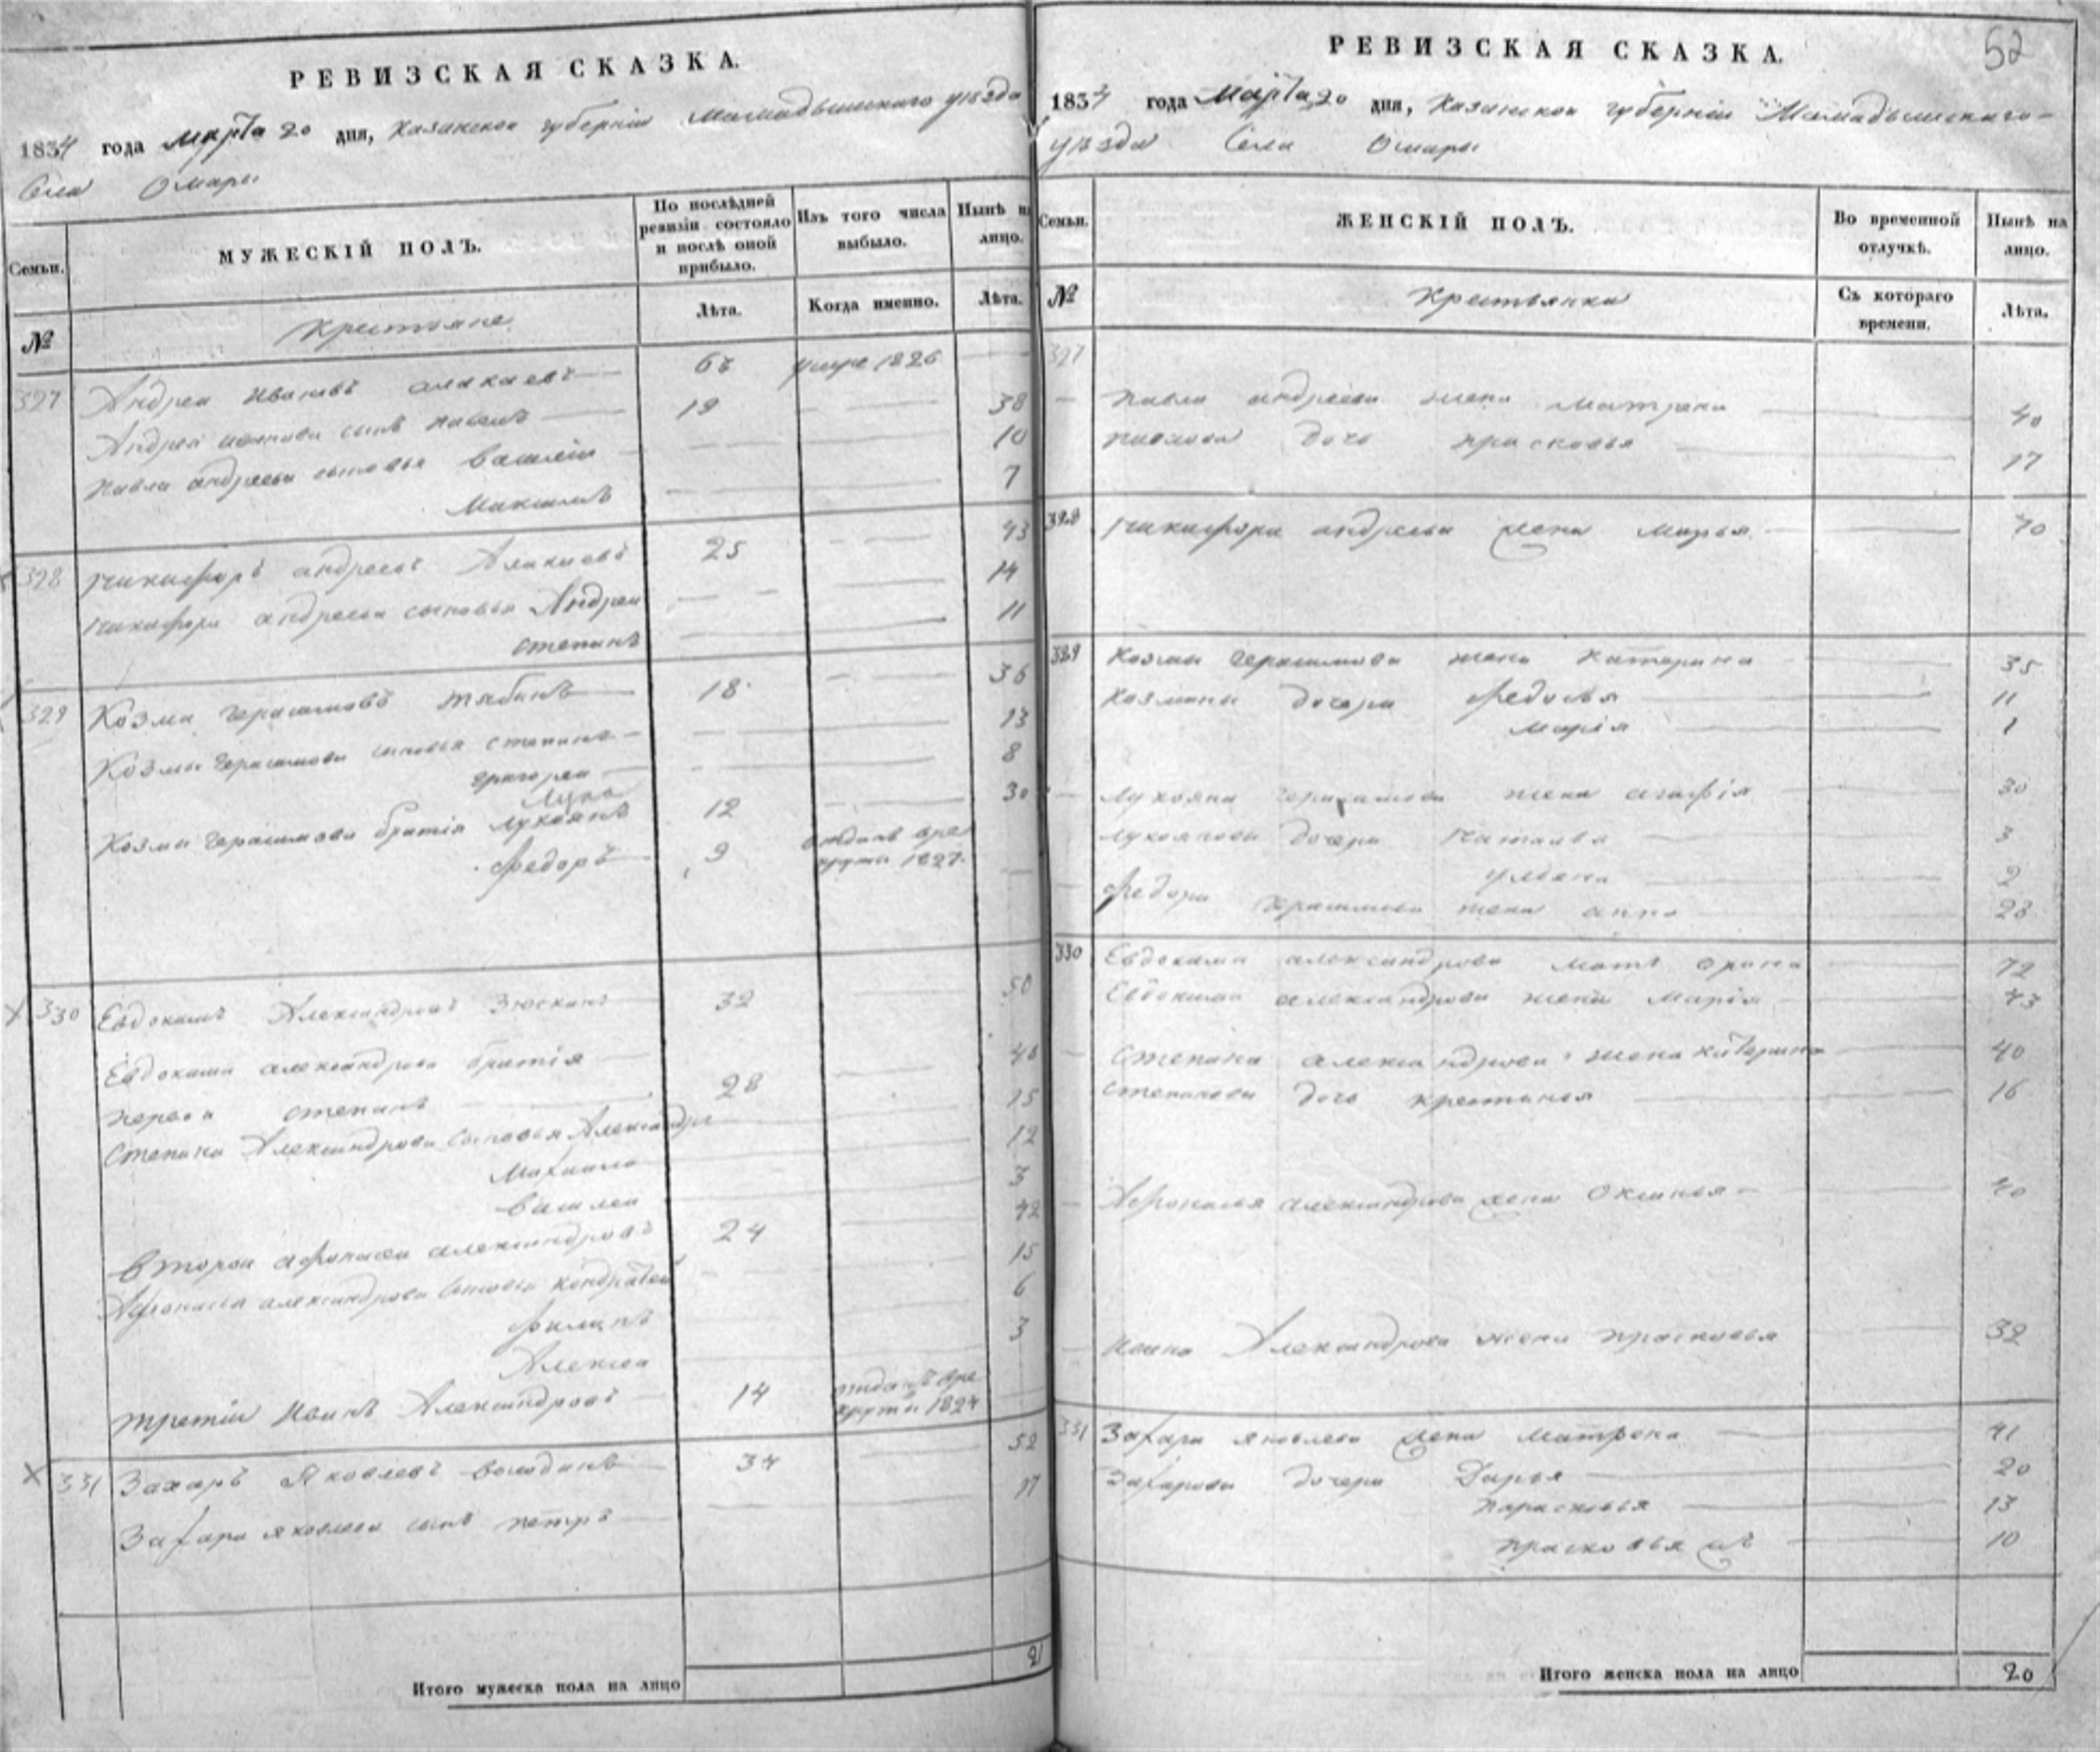 РЕВИЗСКАЯ СКАЗКА.
1834 года Марта 20 дня, Казанской губернии Мамадышскаго уѣзда
Села Омары
Семьи.
МУЖЕСКІЙ ПОЛЪ.
По послѣдней ревизіи состояло и послѣ оной прибыло.
Изъ того числа выбыло.
Нынѣ на лицо.
№
Крестьяне
Лѣта.
Когда именно.
Лѣта.
327 Андрей Ивановъ 65 умре 1826
Андрея Иванова сынъ Павелъ 19 38
Павла Андреева сыновья Василій 10
Максимъ 7
328 Никифоръ Андреевъ 25 43
Никифора Андреева сыновья Андрей 14
Степанъ 11
329 Козма Герасимовъ Тябинъ 18 36
Козмы Герасимова сыновья Степанъ 13
Григорей 8
Козмы Герасимова братія Лукоянъ 12 30
Федоръ 9 отданъ в рекруты 1827
330 Евдокимъ Александровъ 32 50
Евдокима Александрова братія
первой Степанъ 28 46
Степана Александрова сыновья Александръ 15
Михайла 12
Василей 3
второй Афонасей Александровъ 24 42
Афонасья Александрова сыновья Кондратей 15
Филипъ 6
Алексей 3
третій Иванъ Александровъ 14 отданъ в рекруты 1824
331 Захаръ Яковлевъ 34 52
Захара Яковлева сынъ Петръ 17
Итого мужеска пола на лицо 21
52
РЕВИЗСКАЯ СКАЗКА.
1834 года Марта 20 дня, Казанской губернии Мамадышскаго
уѣзда Села Омары
Семьи.
ЖЕНСКІЙ ПОЛЪ.
Во временной отлучкѣ.
Нынѣ на лицо.
№
Крестьянки
Съ котораго времени.
Лѣта.
327
Павла Андреева жена Матрена 40
Павлова дочь Прасковья 17
328 Никифора Андреева жена Марья 40
329 Козмы Герасимова жена Катерина 35
Козмины дочери Федосья 11
Марія 1
Лукояна Герасимова жена Агафія 30
Лукоянова дочери Наталья 3
Ульяна 2
Федора Герасимова жена Анна 28
330 Евдокима Александрова мать Орина 72
Евдокима Александрова жена Марія 43
Степана Александрова жена Катерина 40
Степанова дочь Крестинья 16
Афонасья Александрова жена Оксинья 40
Ивана Александрова жена Прасковья 32
331 Захара Яковлева жена Матрена 41
Захаровы дочери Дарья 20
Парасковья 13
Прасковья 10
Итого женска пола на лицо 20